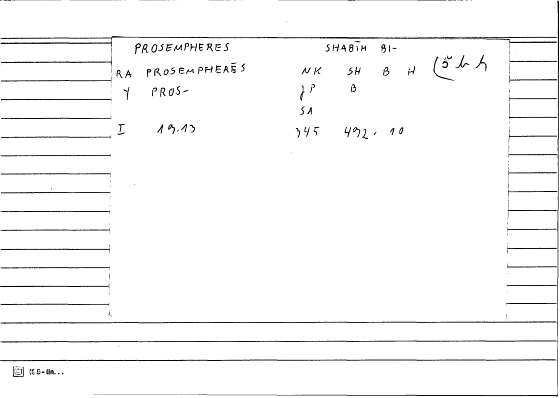 PROSEMPHERES SHABĪH BI-
RA PROSEMPHERĒS NK SH B H (šbh
Y PROS- JP B
SA
I 19.13 345 492.10